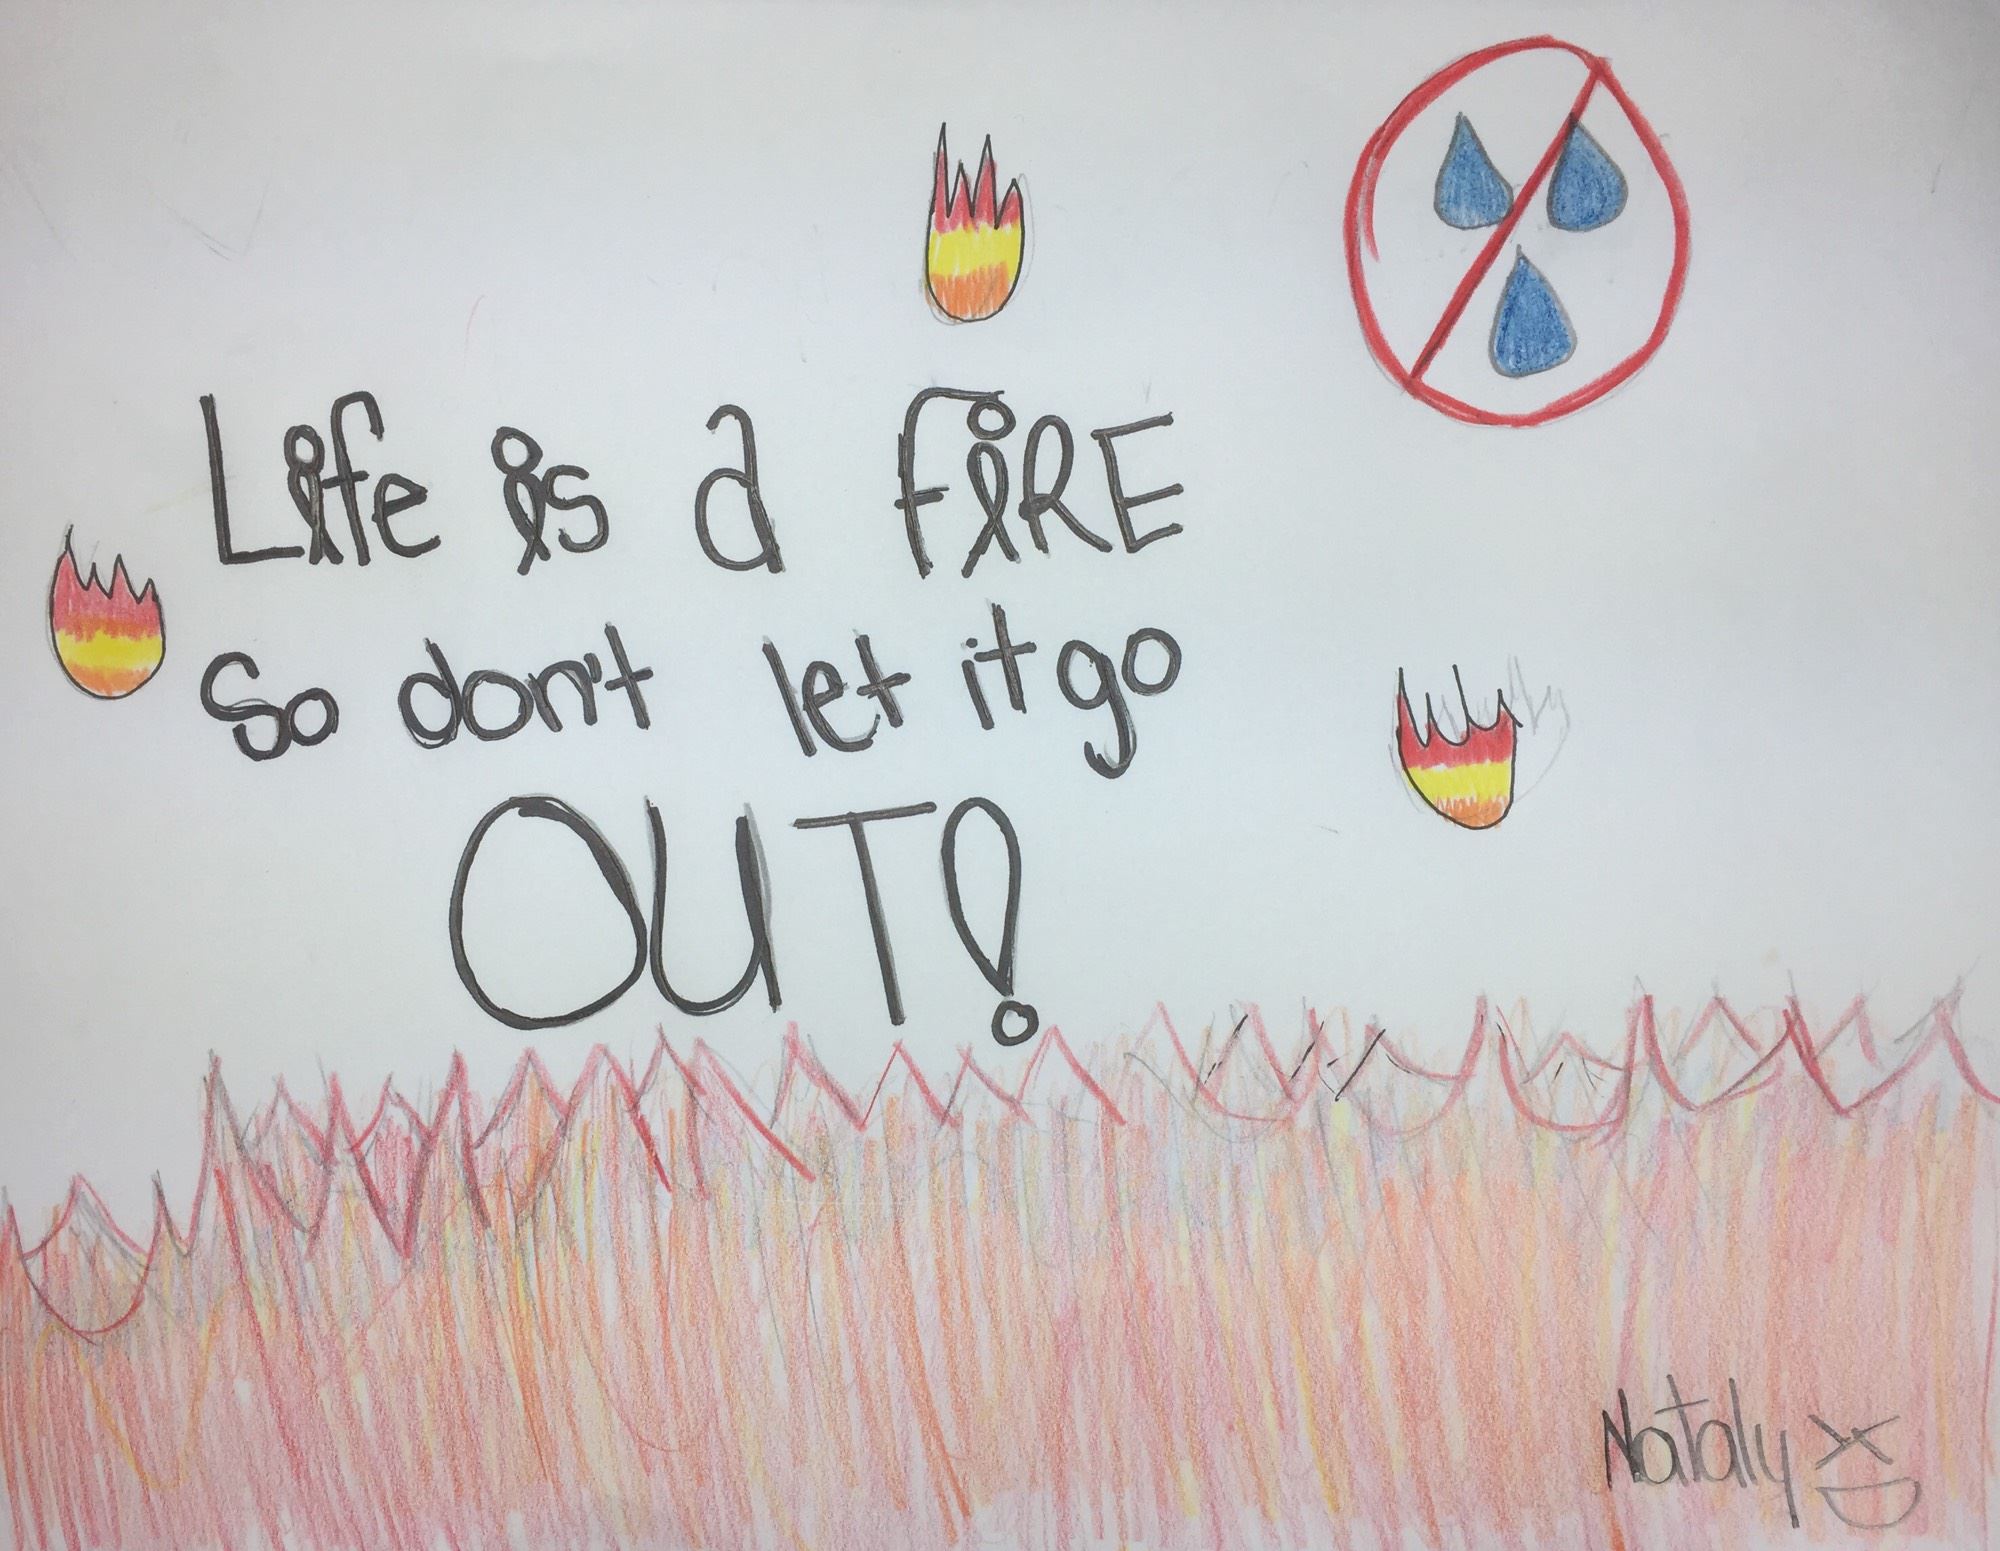 Life is a FiRE
So don't let it go
OUT!
Nataly